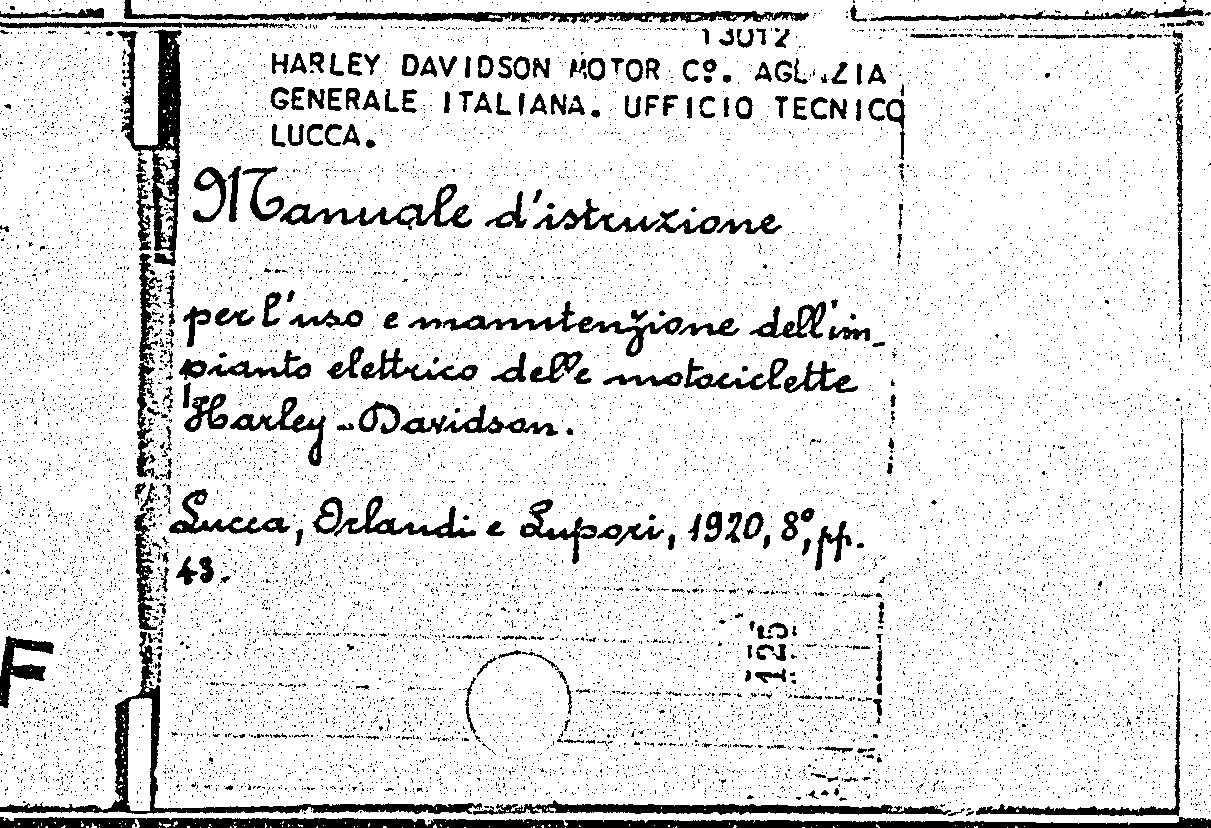 13012
HARLEY DAVIDSON MOTOR Cº. AGENZIA
GENERALE ITALIANA. UFFICIO TECNICO
LUCCA.
Manuale d'istruzione
per l'uso e manutenzione dell'im_
pianto elettrico delle motociclette
Harley-Davidson.
Lucca, Orlandi e Lupori, 1920, 8º, pp.
43.
125
F